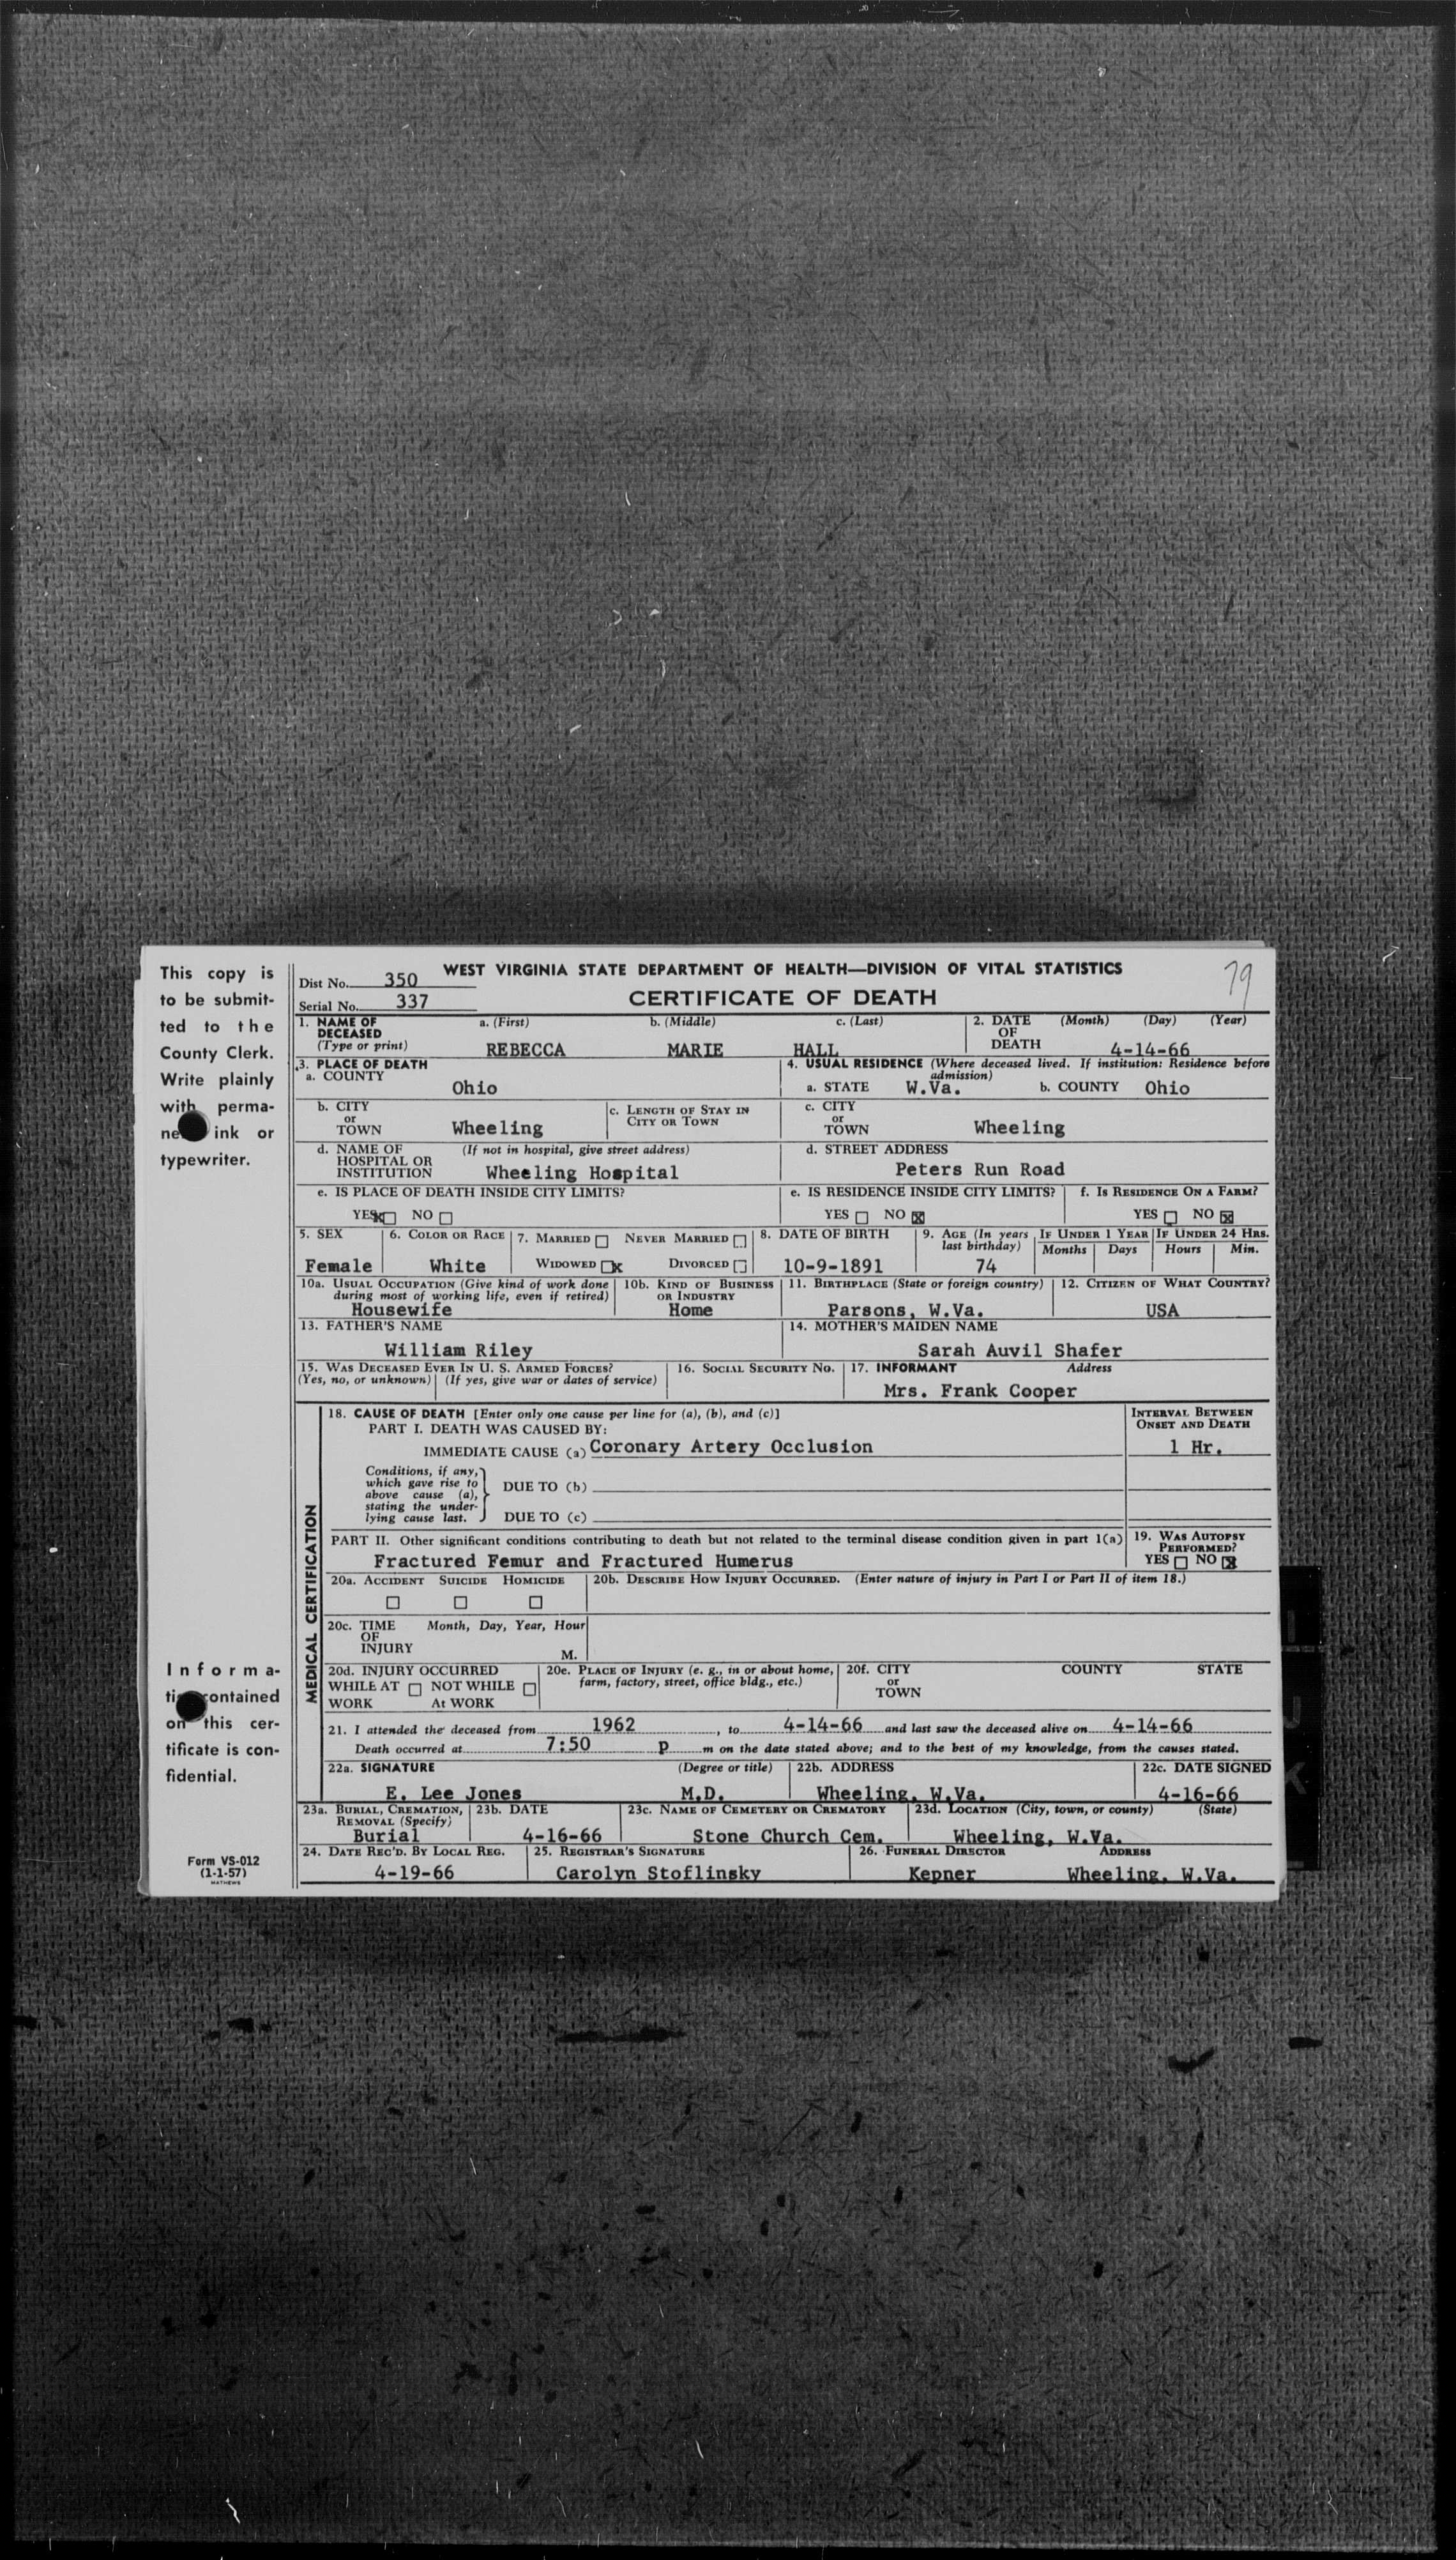 This copy is
to be submit-
ted to the
County Clerk.
Write plainly
with perma-
ne ink or
typewriter.
Informa-
ti contained
on this cer-
tificate is con-
fidential.
Form VS-012
(1-1-57)
MATHEWS
WEST VIRGINIA STATE DEPARTMENT OF HEALTH—DIVISION OF VITAL STATISTICS
Dist No. 350
Serial No. 337
CERTIFICATE OF DEATH
79
1. NAME OF DECEASED (Type or print) a. (First) REBECCA b. (Middle) MARIE c. (Last) HALL
2. DATE OF DEATH (Month) (Day) (Year) 4-14-66
3. PLACE OF DEATH
a. COUNTY Ohio
4. USUAL RESIDENCE (Where deceased lived. If institution: Residence before admission)
a. STATE W.Va. b. COUNTY Ohio
b. CITY or TOWN Wheeling
c. LENGTH OF STAY IN CITY OR TOWN
c. CITY or TOWN Wheeling
d. NAME OF HOSPITAL OR INSTITUTION (If not in hospital, give street address) Wheeling Hospital
d. STREET ADDRESS Peters Run Road
e. IS PLACE OF DEATH INSIDE CITY LIMITS?
YES x NO
e. IS RESIDENCE INSIDE CITY LIMITS?
YES NO x
f. IS RESIDENCE ON A FARM?
YES NO x
5. SEX Female
6. COLOR OR RACE White
7. MARRIED NEVER MARRIED
WIDOWED x DIVORCED
8. DATE OF BIRTH 10-9-1891
9. AGE (In years last birthday) 74
IF UNDER 1 YEAR Months Days
IF UNDER 24 HRS. Hours Min.
10a. USUAL OCCUPATION (Give kind of work done during most of working life, even if retired) Housewife
10b. KIND OF BUSINESS OR INDUSTRY Home
11. BIRTHPLACE (State or foreign country) Parsons, W.Va.
12. CITIZEN OF WHAT COUNTRY? USA
13. FATHER'S NAME William Riley
14. MOTHER'S MAIDEN NAME Sarah Auvil Shafer
15. WAS DECEASED EVER IN U. S. ARMED FORCES?
(Yes, no, or unknown) (If yes, give war or dates of service)
16. SOCIAL SECURITY NO.
17. INFORMANT Address
Mrs. Frank Cooper
MEDICAL CERTIFICATION
18. CAUSE OF DEATH [Enter only one cause per line for (a), (b), and (c)]
PART I. DEATH WAS CAUSED BY:
IMMEDIATE CAUSE (a) Coronary Artery Occlusion
INTERVAL BETWEEN ONSET AND DEATH
1 Hr.
Conditions, if any, which gave rise to above cause (a), stating the under-lying cause last.
DUE TO (b)
DUE TO (c)
PART II. Other significant conditions contributing to death but not related to the terminal disease condition given in part 1(a)
Fractured Femur and Fractured Humerus
19. WAS AUTOPSY PERFORMED?
YES NO x
20a. ACCIDENT SUICIDE HOMICIDE
20b. DESCRIBE HOW INJURY OCCURRED. (Enter nature of injury in Part I or Part II of item 18.)
20c. TIME OF INJURY Month, Day, Year, Hour
M.
20d. INJURY OCCURRED
WHILE AT WORK NOT WHILE At WORK
20e. PLACE OF INJURY (e. g., in or about home, farm, factory, street, office bldg., etc.)
20f. CITY or TOWN COUNTY STATE
21. I attended the deceased from 1962, to 4-14-66 and last saw the deceased alive on 4-14-66
Death occurred at 7:50 p m on the date stated above; and to the best of my knowledge, from the causes stated.
22a. SIGNATURE (Degree or title)
E. Lee Jones M.D.
22b. ADDRESS Wheeling, W.Va.
22c. DATE SIGNED 4-16-66
23a. BURIAL, CREMATION, REMOVAL (Specify) Burial
23b. DATE 4-16-66
23c. NAME OF CEMETERY OR CREMATORY Stone Church Cem.
23d. LOCATION (City, town, or county) (State) Wheeling, W.Va.
24. DATE REC'D. BY LOCAL REG. 4-19-66
25. REGISTRAR'S SIGNATURE Carolyn Stoflinsky
26. FUNERAL DIRECTOR ADDRESS
Kepner Wheeling, W.Va.